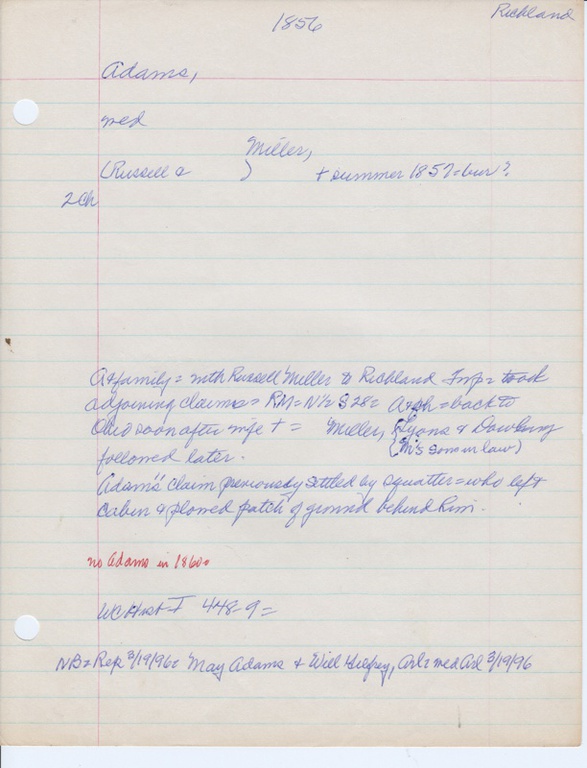 1856
Richland
Adams,
med
Miller,
(Russell & ) + summer 1857=bur?
2 Ch
A+family= with Russell Miller to Richland Twp= took
adjoining claims= RM=N½ S28= A+ch=back to
Ohio soon after wife += Miller, (Lyons & Dowling
followed later. (M's sons in law)
Adams' claim previously settled by squatter=who left
cabin & plowed patch of ground behind him.
no Adams in 1860=
WC Hist I 448-9=
NB=Rep 3/19/96= May Adams + Will Hilfrey, Arl=med Arl 3/19/96